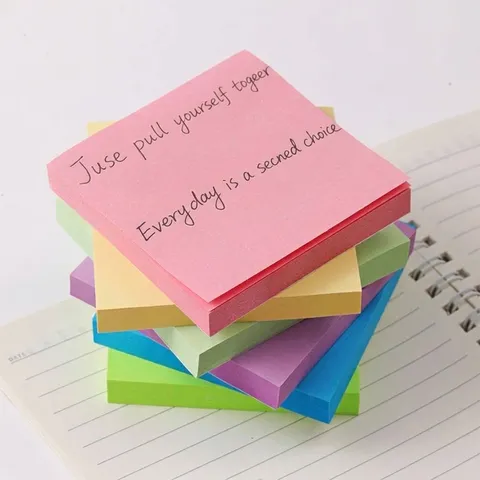 Juse pull yourself togeer
Everyday is a secned choice